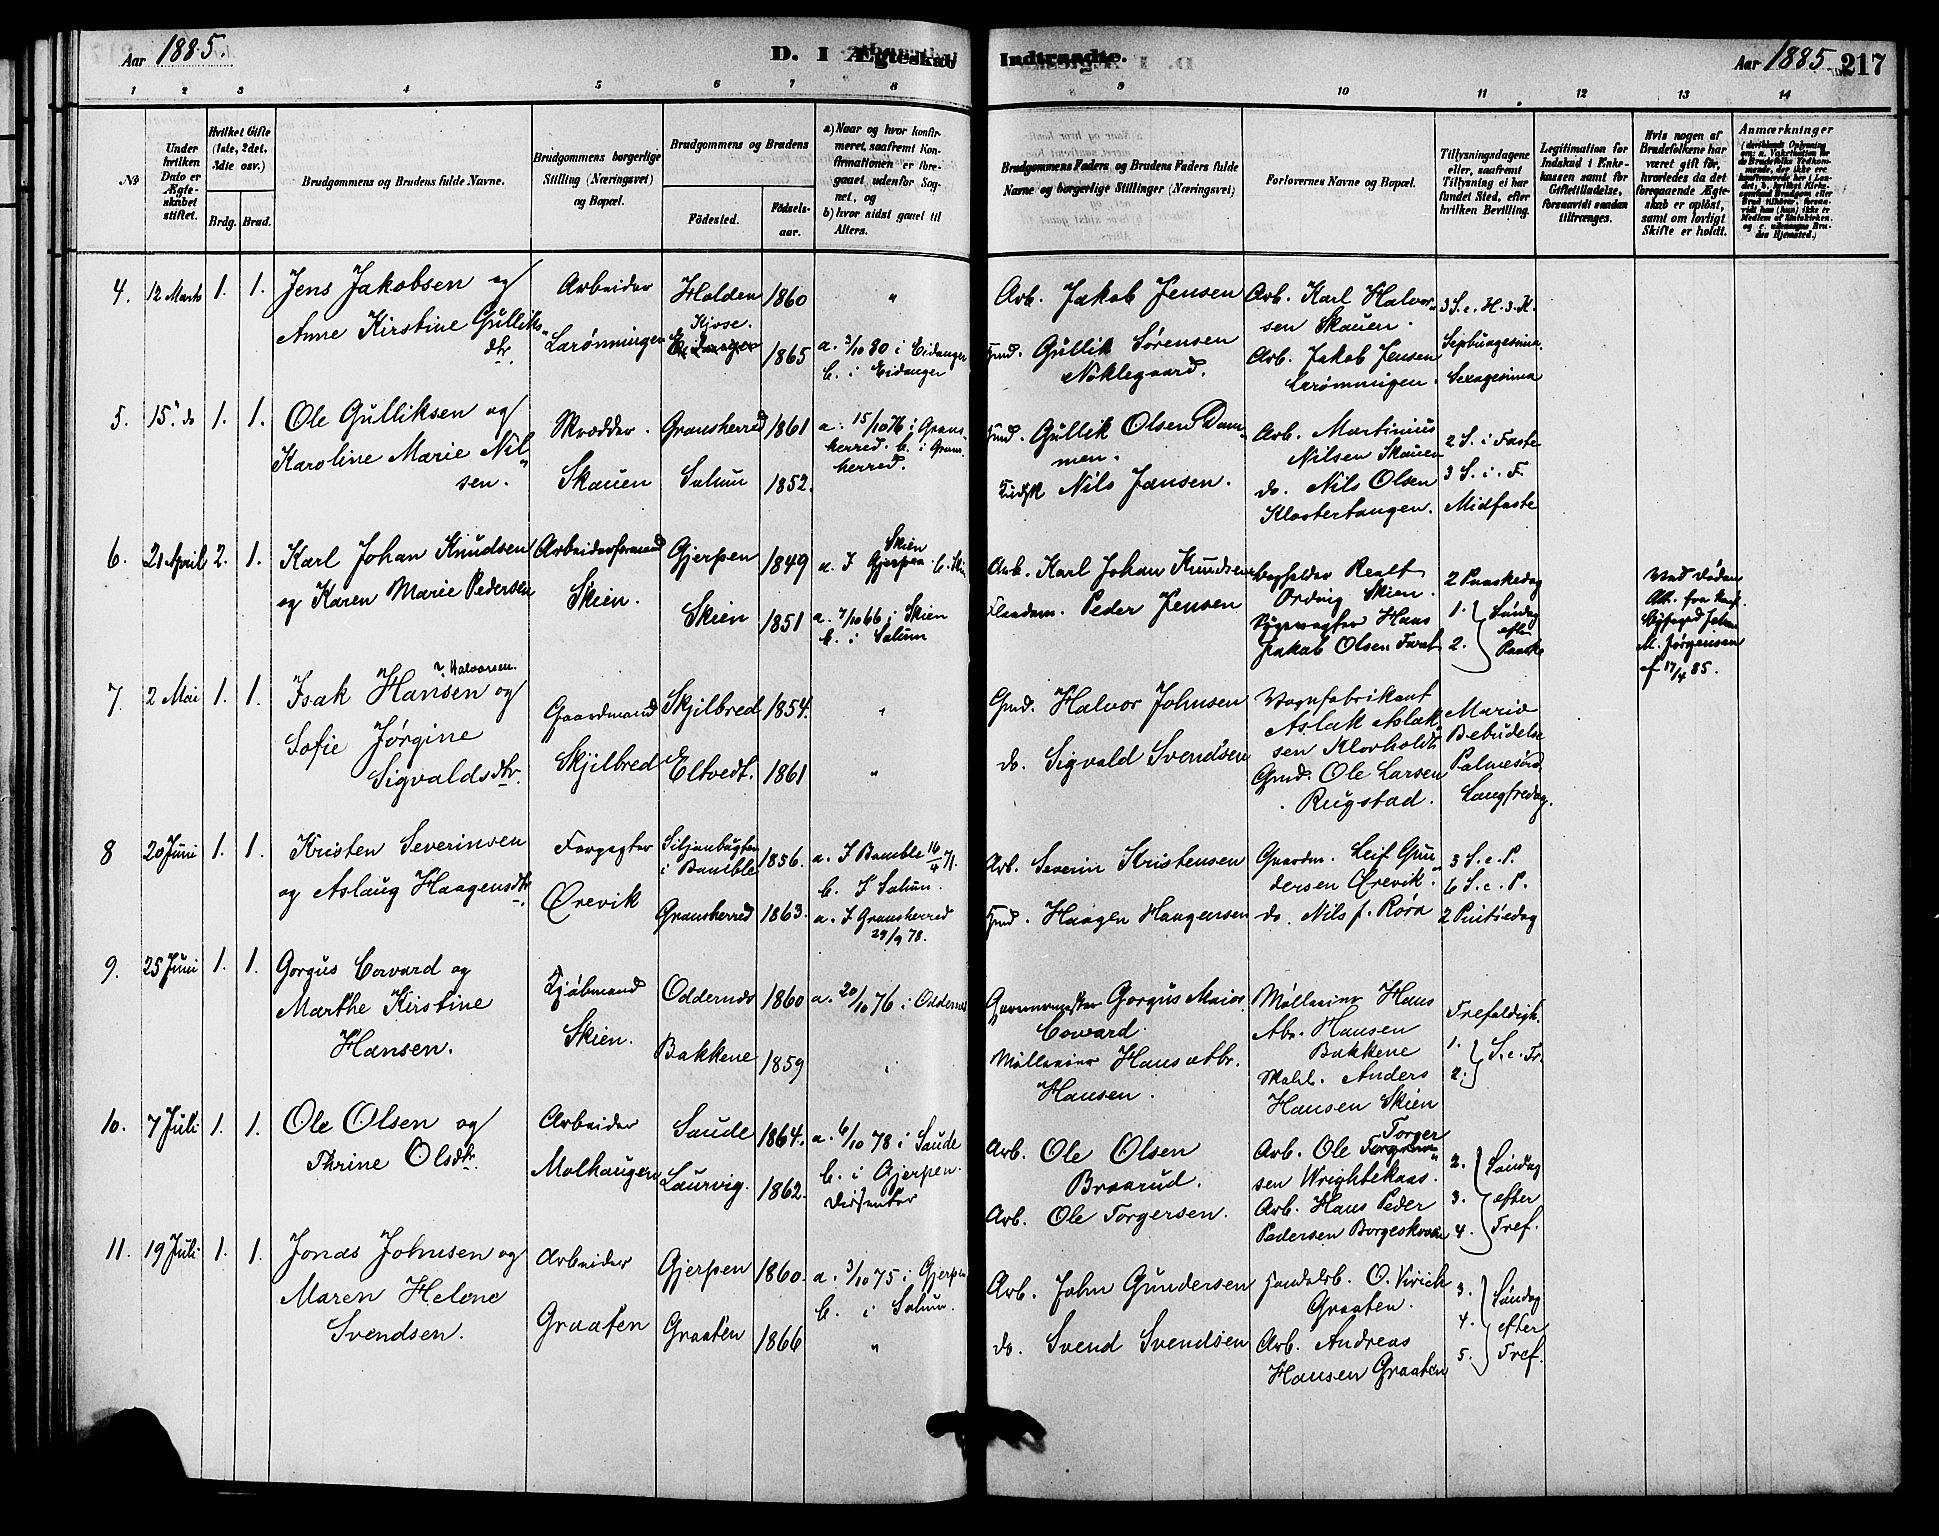 Aar 1885.
D. I Ægteskab
Indtraadte.
Aar 1885.
217
1 2 3 4 5 6 7 8 9 10 11 12 13 14
No
Under
hvilken
Dato er
Ægte-
skabet
stiftet.
Hvilket Gifte
(1ste, 2det,
3die osv.)
Brdg. Brud.
Brudgommens og Brudens fulde Navne.
Brudgommens borgerlige
Stilling (Næringsvei)
og Bopæl.
Brudgommens og Brudens
Födested.
Födsels-
aar.
a) Naar og hvor konfir-
meret, saafremt Kon-
firmationen er fore-
gaaet udenfor Sog-
net, og
b) hvor sidst gaaet til
Alters.
Brudgommens Faders og Brudens Faders fulde
Navne og borgerlige Stillinger (Næringsvei)
Forlovernes Navne og Bopæl.
Tillysningsdagene
eller, saafremt
Tillysning ei har
fundet Sted, efter
hvilken Bevilling.
Legitimation for
Indskud i Enke-
kassen samt for
Giftetilladelse,
forsaavidt saadan
tiltrænges.
Hvis nogen af
Brudefolkene har
været gift för,
hvorledes da det
foregaaende Ægte-
skab er oplöst,
samt om lovligt
Skifte er holdt.
Anmærkninger
4. 12 Marts 1. 1.
Jens Jakobsen og
Anne Kirstine Gulliks-
dtr.
Arbeider
Larønningen
Holden 1860 "
Kjose.
Eidanger 1865
a. 3/10 80 i Eidanger
b. i Eidanger
Arb. Jakob Jensen
Gmd. Gullik Sørensen
Nøklegaard.
Arb. Karl Halvor-
sen Skauen.
Arb. Jakob Jensen
Larønningen.
3 S. e. H. 3. K.
Septuagesima
Sexagesima
5. 15. do 1. 1.
Ole Gulliksen og
Karoline Marie Nil-
sen.
Skrædder.
Skauen
Gransherred 1861
Solum 1852.
a. 15/10 76 i Grans-
herred. b. i Grans-
herred.
Gmd. Gullik Olsen Dam-
men.
Nils Jansen.
Arb. Martinius
Nilsen Skauen
do. Nils Olsen
Klostertangen.
2 S. i Faste
3 S. i. F.
Midfaste
6. 21 April 2. 1.
Karl Johan Knudsen
og Karen Marie Pedersen
Arbeiderformand
Skien.
Gjerpen 1849
Skien 1851
Skien
a. I Gjerpen b. Skien
a. 7/10 66 i Skien
b. i Solum
Arb. Karl Johan Knudsen
Peder Jensen
Ording Skien.
Hans
Jakob Olsen
2 Paaskedag
1. 2. } Søndag
efter
Paaske
Ved Døden
Att. fra
M. Jørgensen
af 17/4 85.
7. 2 Mai 1. 1.
Halvorsen.
Isak Hansen og
Sofie Jørgine
Sigvaldsdtr.
Gaardmand
Skjilbred
Skjilbred 1854. "
Eltvedt. 1861 "
Gmd. Halvor Johnsen
do. Sigvald Svendsen
Vognfabrikant
Aslak Aslak-
sen Klovholdt
Gmd. Ole Larsen
Rugstad.
Mariæ
Bebudelse
Palmesønd.
Langfredag.
8 20 Juni 1. 1.
Kristen Severinsen
og Aslaug Haagensdtr.
Forpagter
Ørevik
Siljanbugten
i Bamble 1856.
Gransherred 1863.
a. I Bamble 16/4 71.
b. I Solum.
a. I Gransherred
29/9 78.
Arb. Severin Kristensen
Gmd. Haagen Haagensen
Gaardm. Leif Gun-
dersen Ørevik.
do. Nils J. Røra
3 S. e. P.
6 S. e. P.
2 Pintsedag
9. 25 Juni 1. 1.
Gorgus Coward og
Marthe Kirstine
Hansen.
Kjøbmand
Skien.
Oddernes 1860
Bakkene 1859
a. 20/10 76 i Oddernes
"
Garvermester Gorgus Maios
Coward.
Mølleeier Hans Abr.
Hansen.
Mølleeier Hans
Abr. Hansen
Bakkene
Anders
Hansen Skien
Trefoldigh.
1. 2. } S. e. Tr.
10. 7 Juli 1. 1.
Ole Olsen og
Thrine Olsdtr.
Arbeider
Molhaugen
Saude 1864.
Laurvig. 1862.
a. 6/10 78 i Saude
b. i Gjerpen.
Dissenter
Arb. Ole Olsen
Braarud.
Arb. Ole Torgersen.
Torger
Arb. Ole
sen Wrightekaas.
Arb. Hans Peder
Pedersen Borgeskoven
2. 3. 4. } Søndag
efter
Tref.
11. 19 Juli 1. 1.
Jonas Johnsen og
Maren Helene
Svendsen.
Arbeider
Graaten
Gjerpen 1860.
Graaten 1866
a. 3/10 75 i Gjerpen
b. i Solum.
"
Arb. John Gundersen
do. Svend Svendsen
O. Virich
Graaten.
Arb. Andreas
Hansen Graaten
3. 4. 5. } Søndag
efter
Tref.